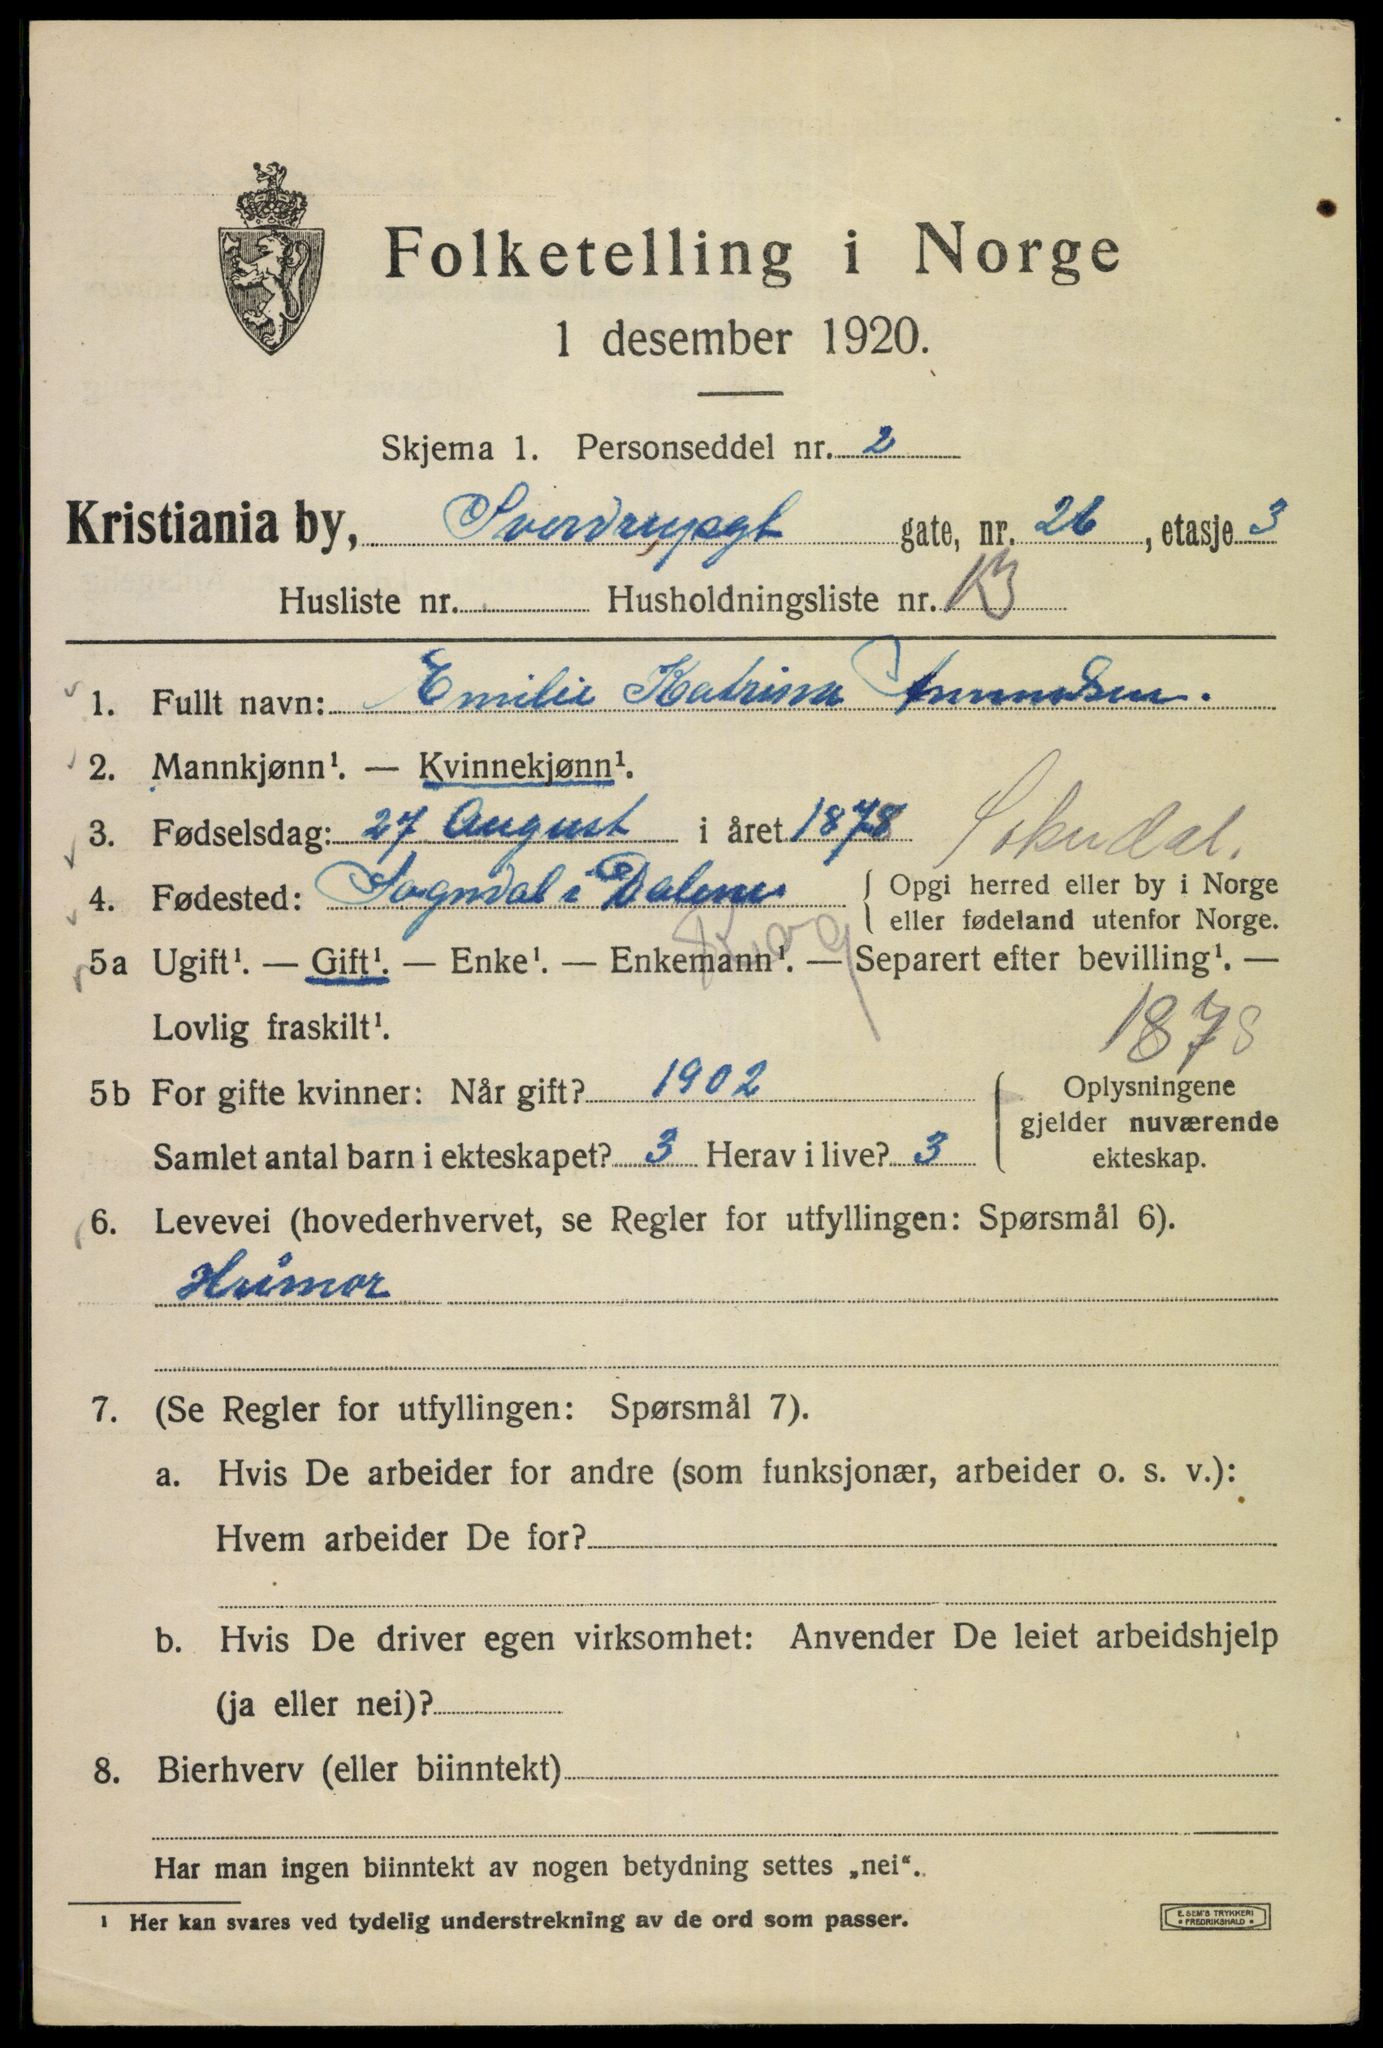 Folketelling i Norge
1 desember 1920.
Skjema 1. Personseddel nr. 2
Kristiania by, Sverdrupsgt gate, nr. 26, etasje 3
Husliste nr. Husholdningsliste nr. 13
1. Fullt navn: Emilie Katrine Amundsen.
2. Mannkjønn¹. — Kvinnekjønn¹.
3. Fødselsdag: 27 August i året 1878
Sokndal.
4. Fødested: Sogndal i Dalene { Opgi herred eller by i Norge
eller fødeland utenfor Norge.
5a Ugift¹. — Gift¹. — Enke¹. — Enkemann¹. — Separert efter bevilling¹. —
Lovlig fraskilt¹.
1878
5b For gifte kvinner: Når gift? 1902 { Oplysningene
gjelder nuværende
Samlet antal barn i ekteskapet? 3 Herav i live? 3 ekteskap.
6. Levevei (hovederhvervet, se Regler for utfyllingen: Spørsmål 6).
Husmor
7. (Se Regler for utfyllingen: Spørsmål 7).
a. Hvis De arbeider for andre (som funksjonær, arbeider o. s. v.):
Hvem arbeider De for?
b. Hvis De driver egen virksomhet: Anvender De leiet arbeidshjelp
(ja eller nei)?
8. Bierhverv (eller biinntekt)
Har man ingen biinntekt av nogen betydning settes „nei“.
¹ Her kan svares ved tydelig understrekning av de ord som passer.
E. SEM'S TRYKKERI
• FREDRIKSHALD •